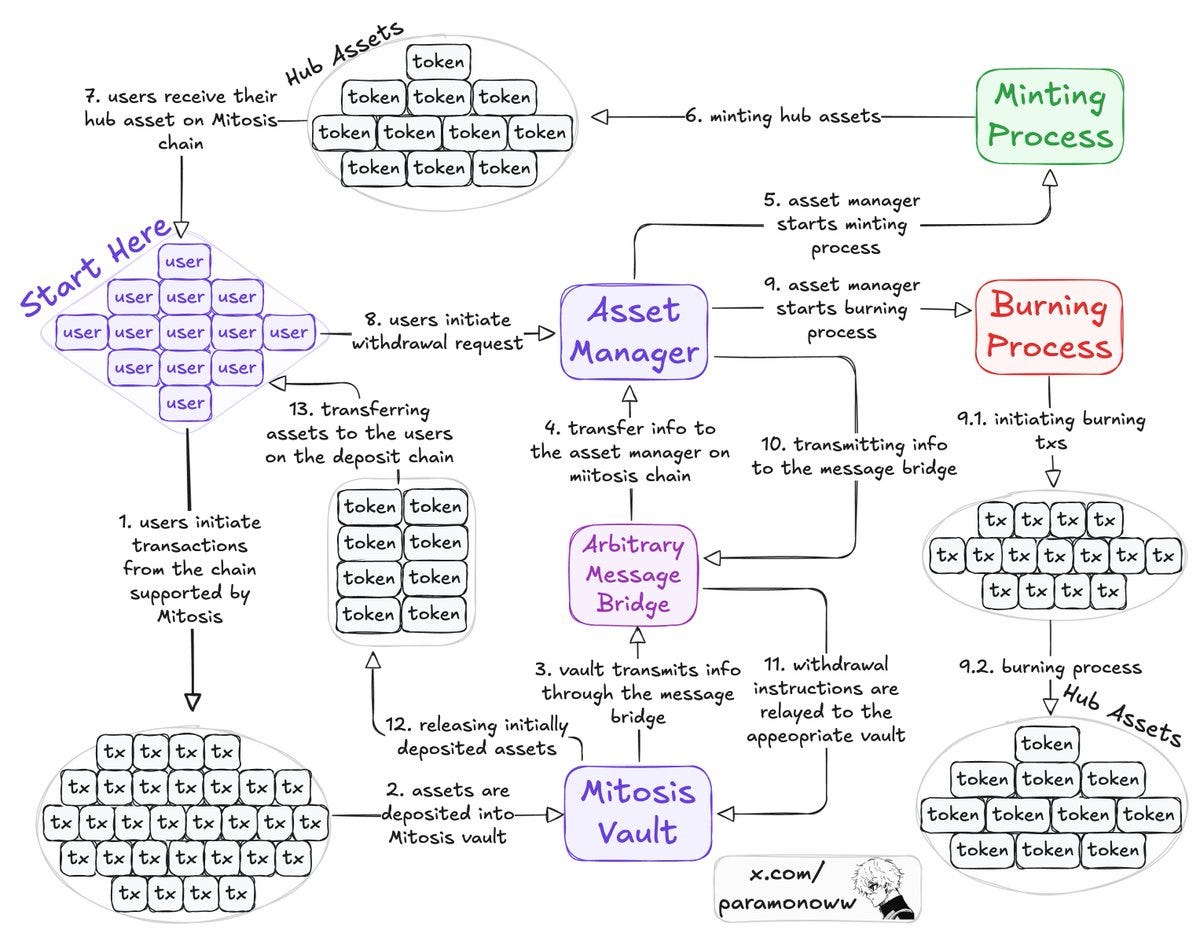 Hub Assets
token
token token token
token token token token
token token token
7. users receive their
hub asset on Mitosis
chain
6. minting hub assets
Minting
Process
5. asset manager
starts minting
process
Start Here
user
user user user
user user user user user
user user user
user
8. users initiate
withdrawal request
Asset
Manager
9. asset manager
starts burning
process
Burning
Process
13. transferring
assets to the users
on the deposit chain
4. transfer info to
the asset manager on
miitosis chain
10. transmitting info
to the message bridge
9.1. initiating burning
txs
tx tx tx tx
tx tx tx tx tx tx tx
tx tx tx tx
1. users initiate
transactions
from the chain
supported by
Mitosis
token token
token token
token token
token token
Arbitrary
Message
Bridge
9.2. burning process
Hub Assets
token
token token token
token token token token
token token token
3. vault transmits info
through the message
bridge
11. withdrawal
instructions are
relayed to the
appeopriate vault
12. releasing initially
deposited assets
tx tx tx tx
tx tx tx tx tx tx tx
tx tx tx tx tx tx tx tx
tx tx tx tx tx tx tx
tx tx tx tx
2. assets are
deposited into
Mitosis vault
Mitosis
Vault
x.com/
paramonoww